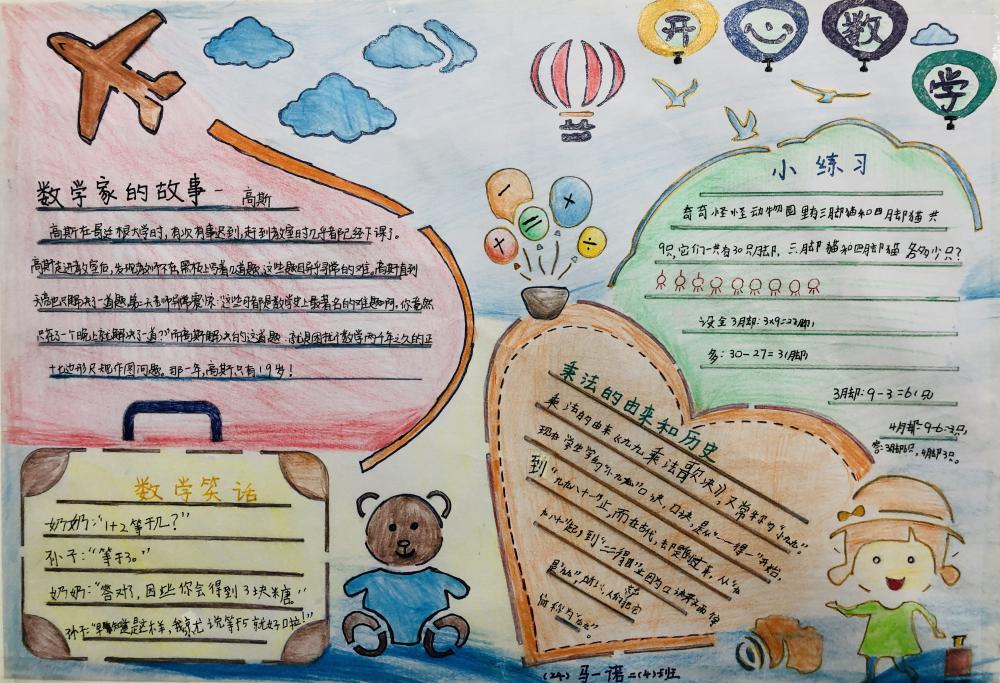 开
数
学
数学家的故事一 高斯
高斯在哥廷根大学时,有次有事迟到,赶到教室时几乎都已经下课了。
高斯走进教室后,发现教师不在,黑板上写着几道题,这些题目异乎寻常的难,高斯直到
天亮也只解决了一道题,第二天老师异常震惊:这些可都是数学史上最著名的难题啊,你竟然
只花了一个晚上就解决了一道?”而高斯解决的这道题,就是困扰数学两千年之久的正
十七边形尺规作图问题。那一年,高斯只有19岁!
小练习
奇奇怪怪动物园里有三脚猫和四脚猫共
9只,它们一共有30只脚,三脚猫和四脚猫各多少只?
设全3脚:3×9=27(脚)
多:30-27=3(脚)
3脚:9-3=6(只)
4脚:9-6=3只,
答:3脚6只,4脚3只。
+
-
×
÷
=
乘法的由来和历史
乘法的由来《九九乘法歌诀》,又常称为“小九九”。
现在学生学的“小九九”口诀,是从“一得一”开始,
到“九九八十一”止,而在古代,却是倒过来,从“九
九八十一”起,到“二二得四”止。因为口诀开头两个字
是“九九”,所以,人们把它
简称为“九九”。
数学笑话
奶奶:“1+2等于几?”
孙子:“等于3。”
奶奶:“答对了,因此你会得到3块糖。”
孙子:“早知道是这样,我就说等于5就好啦!”
(24) 马一诺 二(4)班